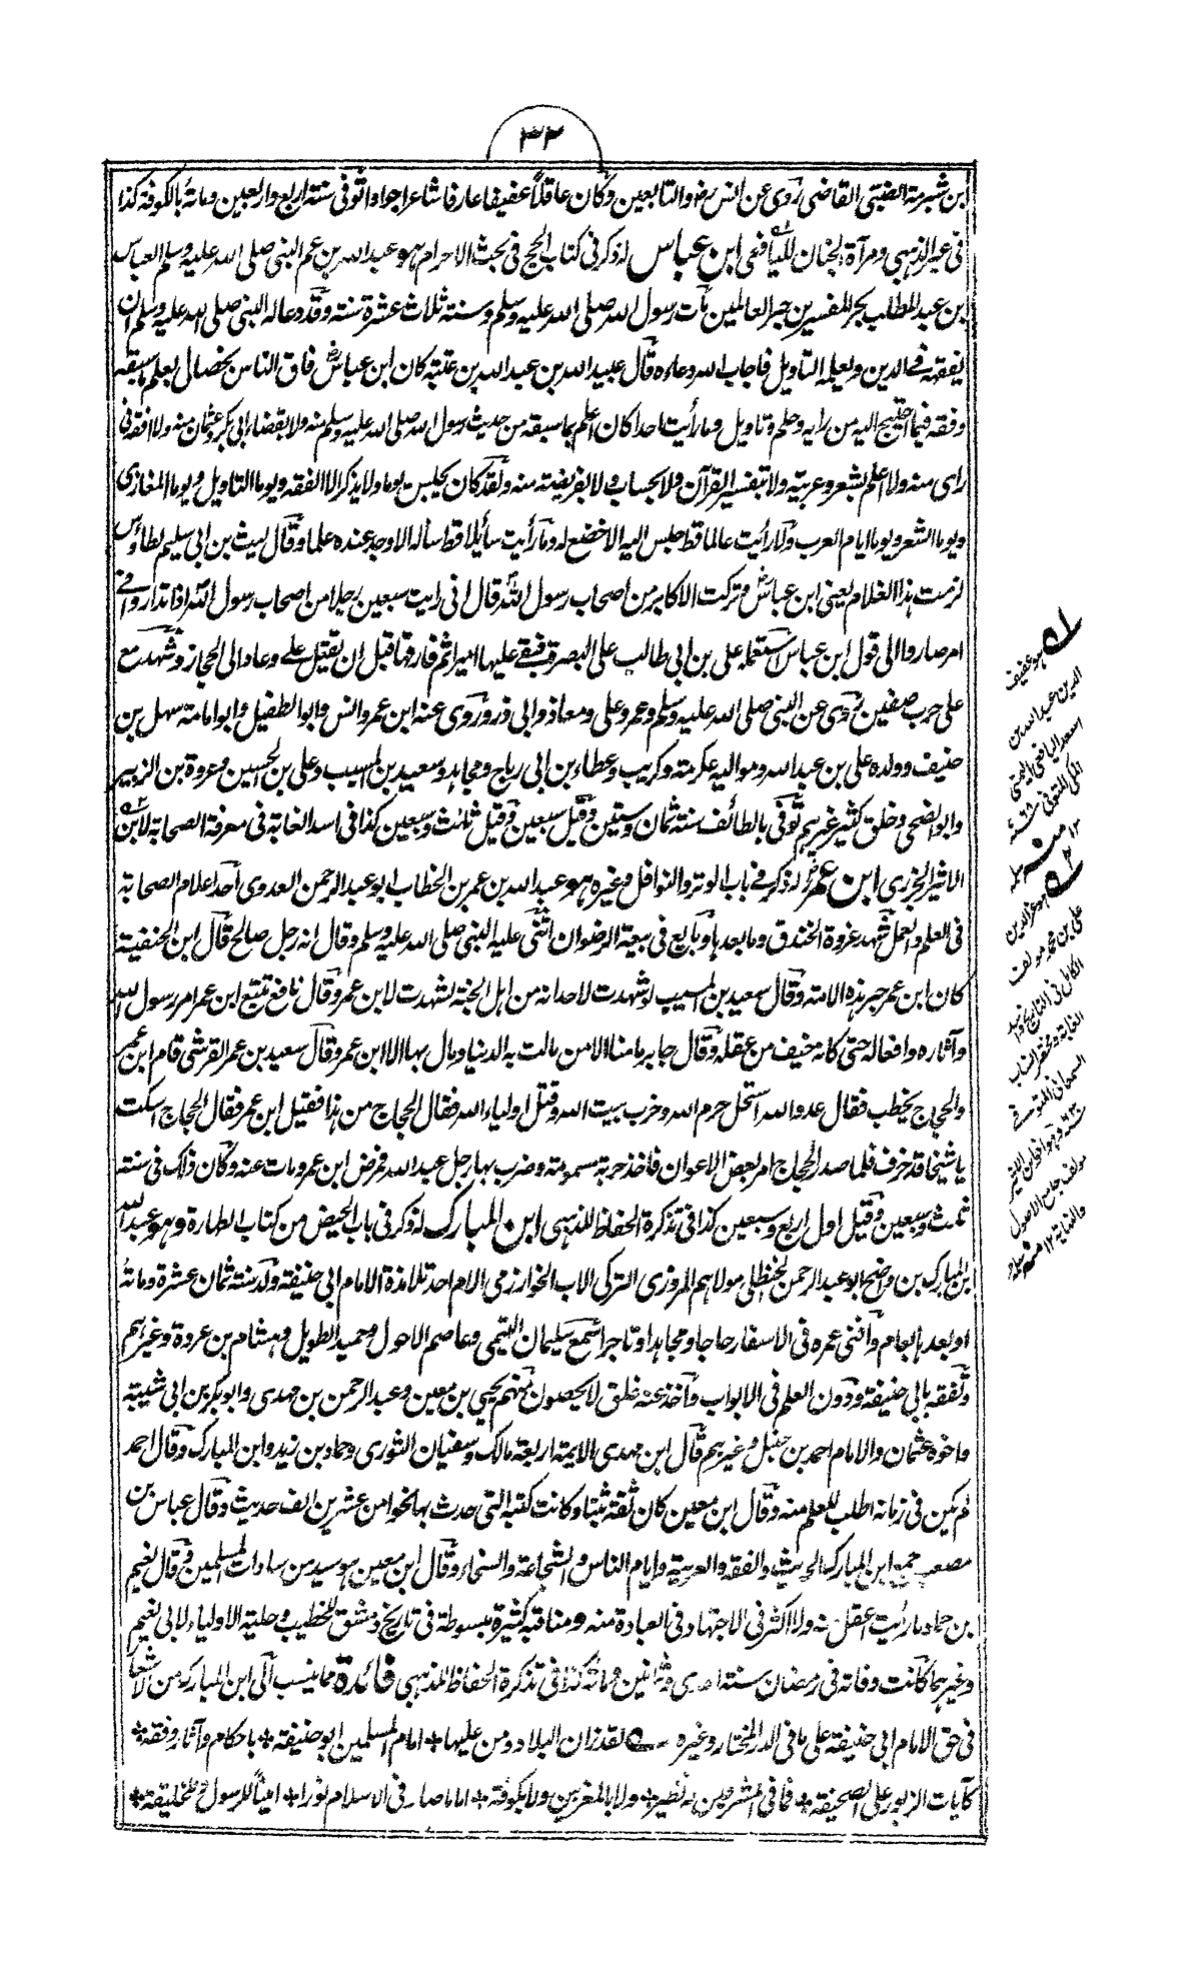 ٣٢
ابن شبرمة الضبي القاضي روى عن انس رض والتابعين وكان عاقلا عفيفا عارفا شاعرا جوادا توفى سنة اربع واربعين ومائة بالكوفة كذا
في عبر الذهبي ومرآة الجنان لليافعي ابن عباس له ذكر في كتاب الحج في بحث الاحرام هو عبد الله بن عم النبي صلى الله عليه وسلم العباس
ابن عبد المطلب بحر المفسرين حبر العالمين مات رسول الله صلى الله عليه وسلم وسنه ثلاث عشرة سنة وقد دعا له النبي صلى الله عليه وسلم ان
يفقهه في الدين ويعلمه التاويل فاجاب الله دعاءه قال عبيد الله بن عبد الله بن عتبة كان ابن عباس رض فاق الناس بخصال بعلم ما سبقه
وفقه فيما احتيج اليه من رايه وحلم وتاويل وما رأيت احدا كان اعلم بما سبقه من حديث رسول الله صلى الله عليه وسلم منه ولا بقضاء ابي بكر وعثمان منه ولا افقه في
راى منه ولا اعلم بشعر وعربية ولا تبفسير القرآن ولا بحساب ولا بفريضة منه ولقد كان يجلس يوما ولا يذكر الا الفقه ويوما التاويل ويوما المغازي
ويوما الشعر ويوما ايام العرب ولا رأيت عالما قط جلس اليه الا خضع له وما رأيت سائلا قط سأله الا وجد عنده علما وقال ليث بن ابي سليم لطاؤس
لزمت هذا الغلام يعني ابن عباس رض وتركت الاكابر من اصحاب رسول الله قال اني رايت سبعين رجلا من اصحاب رسول الله اذا تدارؤا في
امر صاروا الى قول ابن عباس استعمله علي بن ابي طالب على البصرة فبقي عليها اميرا ثم فارقها قبل ان يقتل علي وعاد الى الحجاز وشهد مع
علي حرب صفين روى عن النبي صلى الله عليه وسلم وعمر وعلي ومعاذ وابي ذر وروى عنه ابن عمر وانس وابو الطفيل وابو امامة سهل بن
حنيف وولده علي بن عبد الله ومواليه عكرمة وكريب وعطاء بن ابي رباح ومجاهد وسعيد بن المسيب وعلي بن الحسين وعروة بن الزبير
وابو الضحى وخلق كثير غيرهم توفى بالطائف سنة ثمان وستين وقيل سبعين وقيل ثلث وسبعين كذا في اسد الغابة في معرفة الصحابة لابن
الاثير الجزري ابن عمر رض له ذكر في باب الوتر والنوافل وغيره هو عبد الله بن عمر بن الخطاب ابو عبد الرحمن العدوي احد اعلام الصحابة
في العلم والعمل شهد غزوة الخندق وما بعدها وبايع في بيعة الرضوان اثنى عليه النبي صلى الله عليه وسلم وقال انه رجل صالح قال ابن الحنفية
كان ابن عمر حبر هذه الامة وقال سعيد بن المسيب لو شهدت لاحد انه من اهل الجنة لشهدت لابن عمر وقال نافع تتبع ابن عمر امر رسول الله
وآثاره وافعاله حتى كانه خيف من عقله وقال جابر ما منا الا من مالت به الدنيا ومال بها الا ابن عمر وقال سعيد بن عمر القرشي قام ابن عمر
والحجاج يخطب فقال عدو الله استحل حرم الله وخرب بيت الله وقتل اولياء الله فقال الحجاج من هذا فقيل ابن عمر فقال الحجاج اسكت
يا شيخا قد خرف فلما صدر الحجاج امر بعض الاعوان فاخذ حربة مسمومة وضرب بها رجل عبد الله فمرض ابن عمر ومات عنه وكان ذلك في سنة
ثلث وسبعين وقيل اول اربع وسبعين كذا في تذكرة الحفاظ للذهبي ابن المبارك له ذكر في باب الحيض من كتاب الطهارة وهو عبد الله
ابن المبارك بن واضح ابو عبد الرحمن الحنظلي مولاهم المروزي التركي الاب الخوارزمي الام احد تلامذة الامام ابي حنيفة ولد سنة ثمان عشرة ومائة
او بعدها بعام وافنى عمره في الاسفار حاجا ومجاهدا وتاجرا سمع سليمان التيمي وعاصم الاحول وحميد الطويل وهشام بن عروة وغيرهم
وتفقه بابي حنيفة ودون العلم في الابواب واخذ عنه خلق لا يحصون منهم يحيى بن معين وعبد الرحمن بن مهدي وابو بكر بن ابي شيبة
واخوه عثمان والامام احمد بن حنبل وغيرهم قال ابن مهدي الايمة اربعة مالك وسفيان الثوري وحماد بن زيد وابن المبارك وقال احمد
لم يكن في زمانه اطلب للعلم منه وقال ابن معين كان ثقة ثبتا وكانت كتبه التي حدث بها نحوا من عشرين الف حديث وقال عباس بن
مصعب جمع ابن المبارك الحديث والفقه والعربية وايام الناس والشجاعة والسخاء وقال ابن معين هو سيد من سادات المسلمين وقال نعيم
بن حماد ما رأيت اعقل منه ولا اكثر في الاجتهاد في العبادة منه ومناقبه كثيرة مبسوطة في تاريخ دمشق للخطيب وحلية الاولياء لابي نعيم
وغيرهما كانت وفاته في رمضان سنة احدى وثمانين ومائة كذا في تذكرة الحفاظ للذهبي فائدة مما ينسب الى ابن المبارك من الاشعار
في حق الامام ابي حنيفة على ما في الدر المختار وغيره لقد زان البلاد ومن عليها * امام المسلمين ابو حنيفة * باحكام وآثار وفقه *
كآيات الزبور على الصحيفة * فما في المشرقين له نظير * ولا بالمغربين ولا بكوفة * اماما صار في الاسلام نورا * امينا للرسول وللخليفة *
له هو عفيف
الدين عبد الله بن
اسعد اليافعي اليمني
المكي المتوفى
١٢ منه
هو عز الدين
علي بن محمد مؤلف
الكامل في التاريخ واسد
الغابة ومختصر انساب
السمعاني المتوفى
وهو اخو ابن الاثير
مؤلف جامع الاصول
والنهاية ١٢ منه